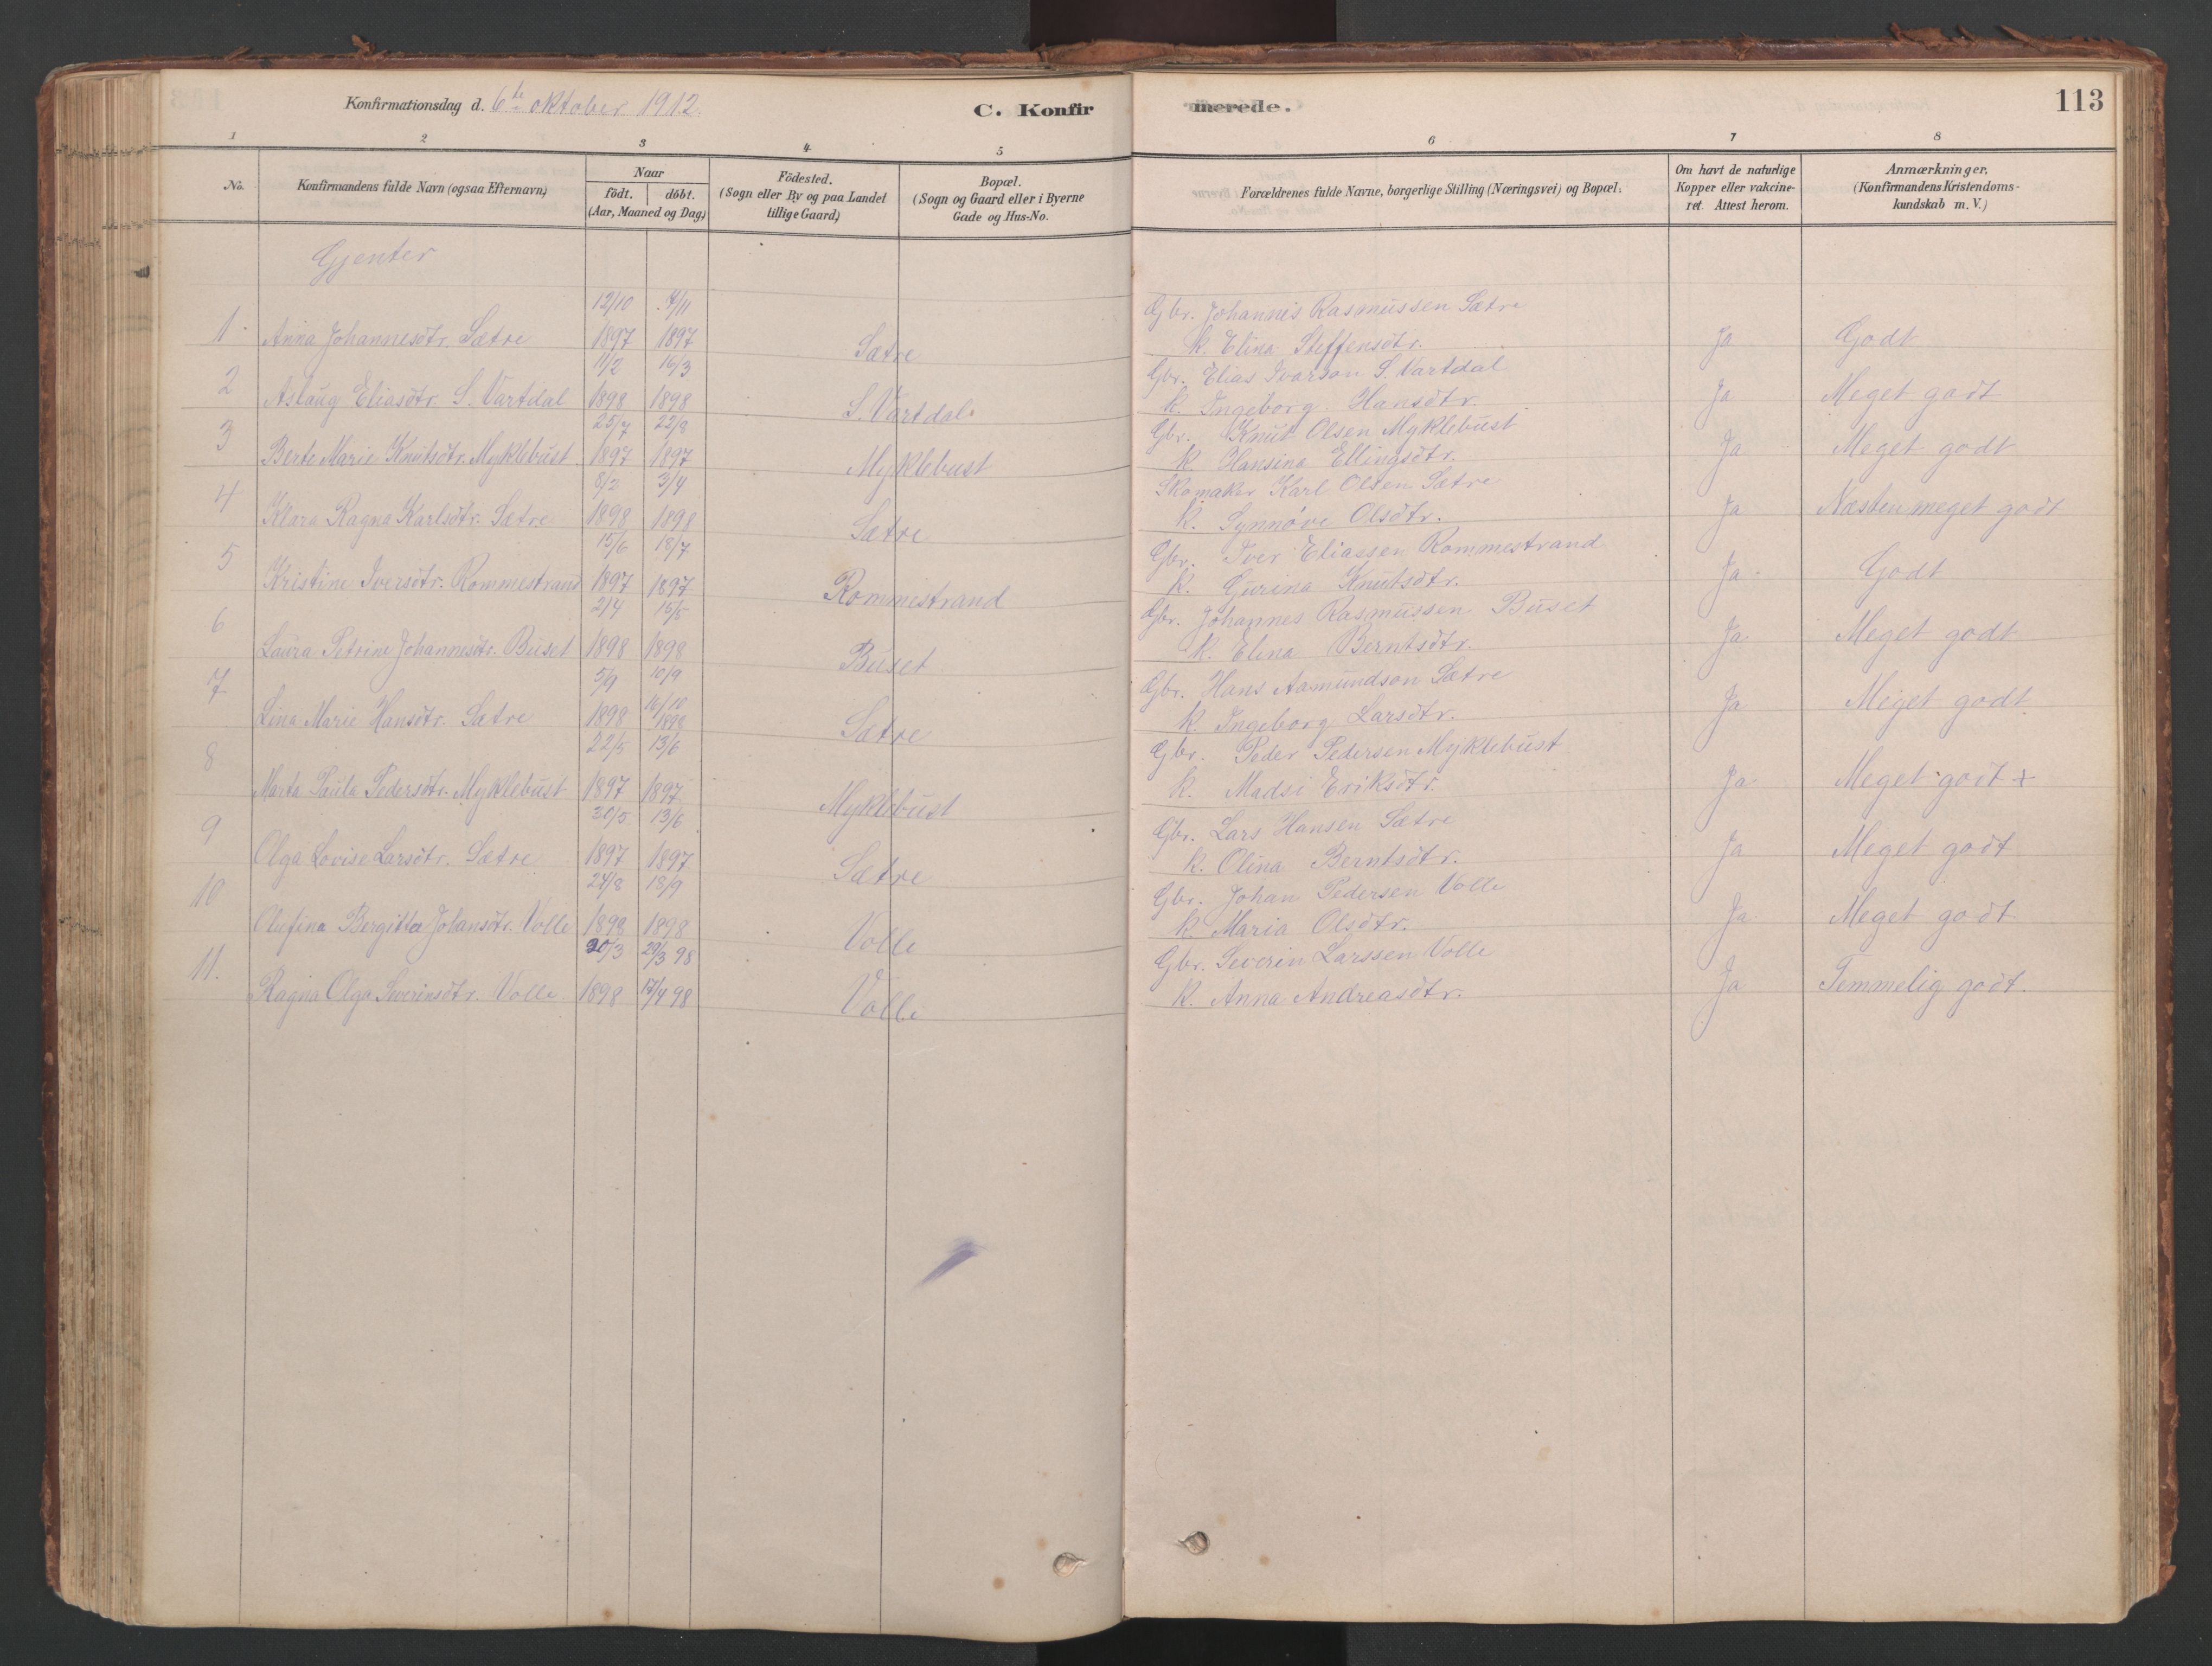 Konfirmationsdag d. 6te oktober 1912.
C. Konfir
merede.
113
1 2 3 4 5 6 7 8
No.
Konfirmandens fulde Navn (ogsaa Efternavn)
Naar
födt. döbt.
(Aar, Maaned og Dag)
Födested.
(Sogn eller By og paa Landet
tillige Gaard)
Bopæl.
(Sogn og Gaard eller i Byerne
Gade og Hus-No.
Forældrenes fulde Navne, borgerlige Stilling (Næringsvei) og Bopæl.
Om havt de naturlige
Kopper eller vakcine-
ret. Attest herom.
Anmærkninger.
(Konfirmandens Kristendoms-
kundskab m. V.)
Gjenter
12/10 7/11 Gbr. Johannis Rasmussen Sætre
1. Anna Johannesdtr. Sætre 1897 1897 Sætre K. Elina Steffensdtr. Ja Godt
11/2 16/3 Gbr. Elias Ivarson S. Vartdal
2 Aslaug Eliasdtr. S. Vartdal 1898 1898 S. Vartdal K. Ingeborg Hansdtr. Ja Meget godt
25/7 22/8 Gbr. Knut Olsen Myklebust
3 Berte Marie Knutsdtr. Myklebust 1897 1897 Myklebust K. Hansina Ellingsdtr. Ja Meget godt
8/2 3/4 Skomaker Karl Olsen Sætre
4 Klara Ragna Karlsdtr. Sætre 1898 1898 Sætre K. Synnöve Olsdtr. Ja Næsten meget godt
15/6 18/7 Gbr. Iver Eliassen Rommestrand
5 Kristine Iversdtr. Rommestrand 1897 1897 Rommestrand K. Gurina Knutsdtr. Ja Godt
2/4 15/5 Gbr. Johannes Rasmussen Buset
6 Laura Petrine Johannesdtr. Buset 1898 1898 Buset K. Elina Berntsdtr. Ja Meget godt
5/9 10/9 Gbr. Hans Aamundson Sætre
7 Lina Marie Hansdtr. Sætre 1898 16/10 1898 Sætre K. Ingeborg Larsdtr. Ja Meget godt
22/5 13/6 Gbr. Peder Pedersen Myklebust
8 Marta Paula Pedersdtr. Myklebust 1897 1897 Myklebust K. Madsi Eriksdtr. Ja Meget godt +
30/5 13/6 Gbr. Lars Hansen Sætre
9 Olga Lovise Larsdtr. Sætre 1897 1897 Sætre K. Olina Berntsdtr. Ja Meget godt
24/8 18/9 Gbr. Johan Pedersen Volle
10 Olufina Bergitta Johansdtr. Volle 1898 1898 Volle K. Maria Olsdtr. Ja Meget godt
20/3 29/3 98 Gbr. Severin Larssen Volle
11. Ragna Olga Severinsdtr. Volle 1898 17/4 98 Volle K. Anna Andreasdtr. Ja Temmelig godt.